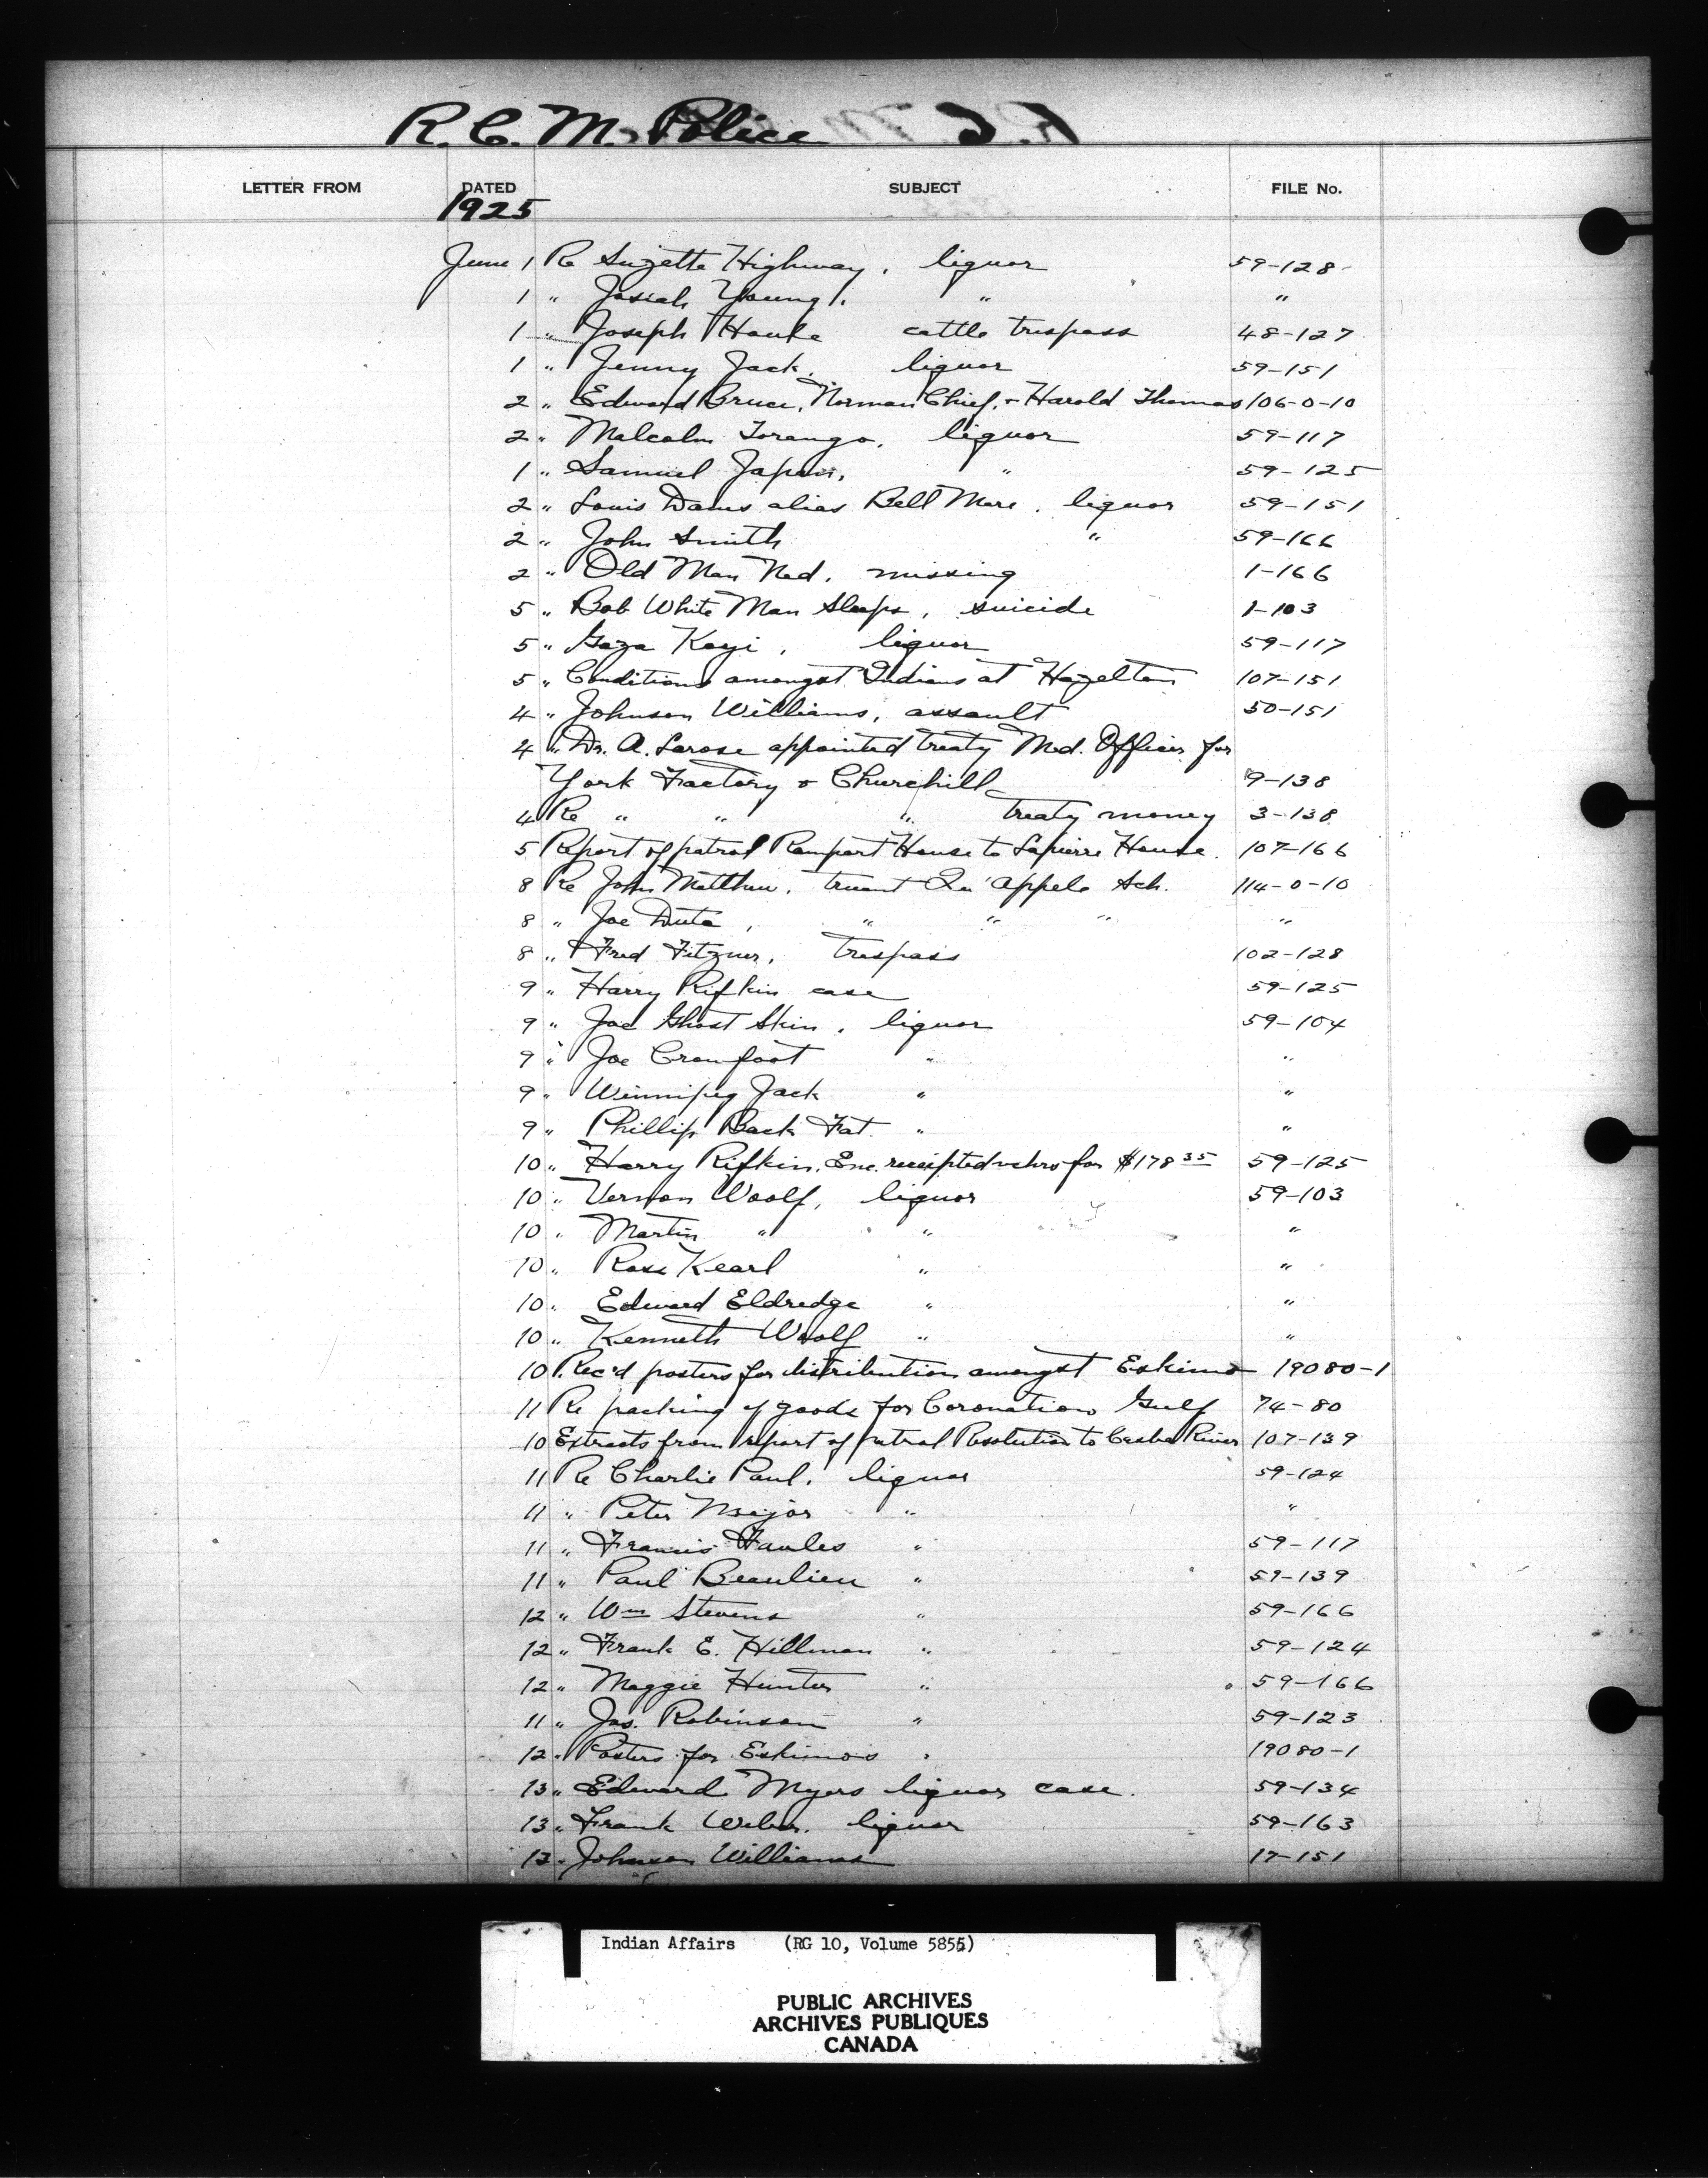 R. C. M. Police
LETTER FROM DATED SUBJECT FILE No.
1925
June 1 Re Suzette Highway, liquor 59-128
1 " Josiah Young, " "
1 " Joseph Houle cattle trespass 48-127
1 " Jenny Jack, liquor 59-151
2 " Edward Bruce, Norman Chief, & Harold Thomas 106-0-10
2 " Malcolm Torango, liquor 59-117
1 " Samuel " 59-125
2 " Louis alias Bell Mare, liquor 59-151
2 " John Smith " 59-166
2 " Old Man Ned, missing 1-166
5 " Bob White Man Sleeps, suicide 1-103
5 " Gaza Kayi, liquor 59-117
5 " Conditions amongst Indians at Hazelton 107-151
4 " Johnson Williams, assault 50-151
4 " Dr. A. Larose appointed treaty Med. Officer for
York Factory & Churchill 9-138
4 Re " " " treaty money 3-138
5 Report of patrol Rampart House to Lapierre House. 107-166
8 Re John Matthew, truant Qu'Appele Sch. 114-0-10
8 " Joe Duta, " " " "
8 " Fred Fitzner, trespass 102-128
9 " Harry Rifkin case 59-125
9 " Joe Ghost Skin, liquor 59-104
9 " Joe Crowfoot " "
9 " Winnipeg Jack " "
9 " Phillip Back Fat " "
10 " Harry Rifkin. Enc. receipted vchrs for $178 35 59-125
10 " Vernon Woolf, liquor 59-103
10 " Martin " " "
10 " Ross Kearl " "
10 " Edward Eldredge " "
10 " Kenneth Woolf " "
10 Rec'd posters for distribution amongst Eskimo 19080-1
11 Re packing of goods for Coronation Gulf 74-80
10 Extracts from report of patrol Resolution to River 107-139
11 Re Charlie Paul, liquor 59-124
11 " Peter Major " "
11 " Francis Faules " 59-117
11 " Paul Beaulieu " 59-139
12 " Wm Stevens " 59-166
12 " Frank E. Hillman " 59-124
12 " Maggie Hunter " 59-166
11 " Jas. Robinson " 59-123
12 " Posters for Eskimos 19080-1
13 " Edward Myers liquor case. 59-134
13 " Frank Weber, liquor 59-163
13 " Johnson Williams 17-151
Indian Affairs (RG 10, Volume 5855)
PUBLIC ARCHIVES
ARCHIVES PUBLIQUES
CANADA